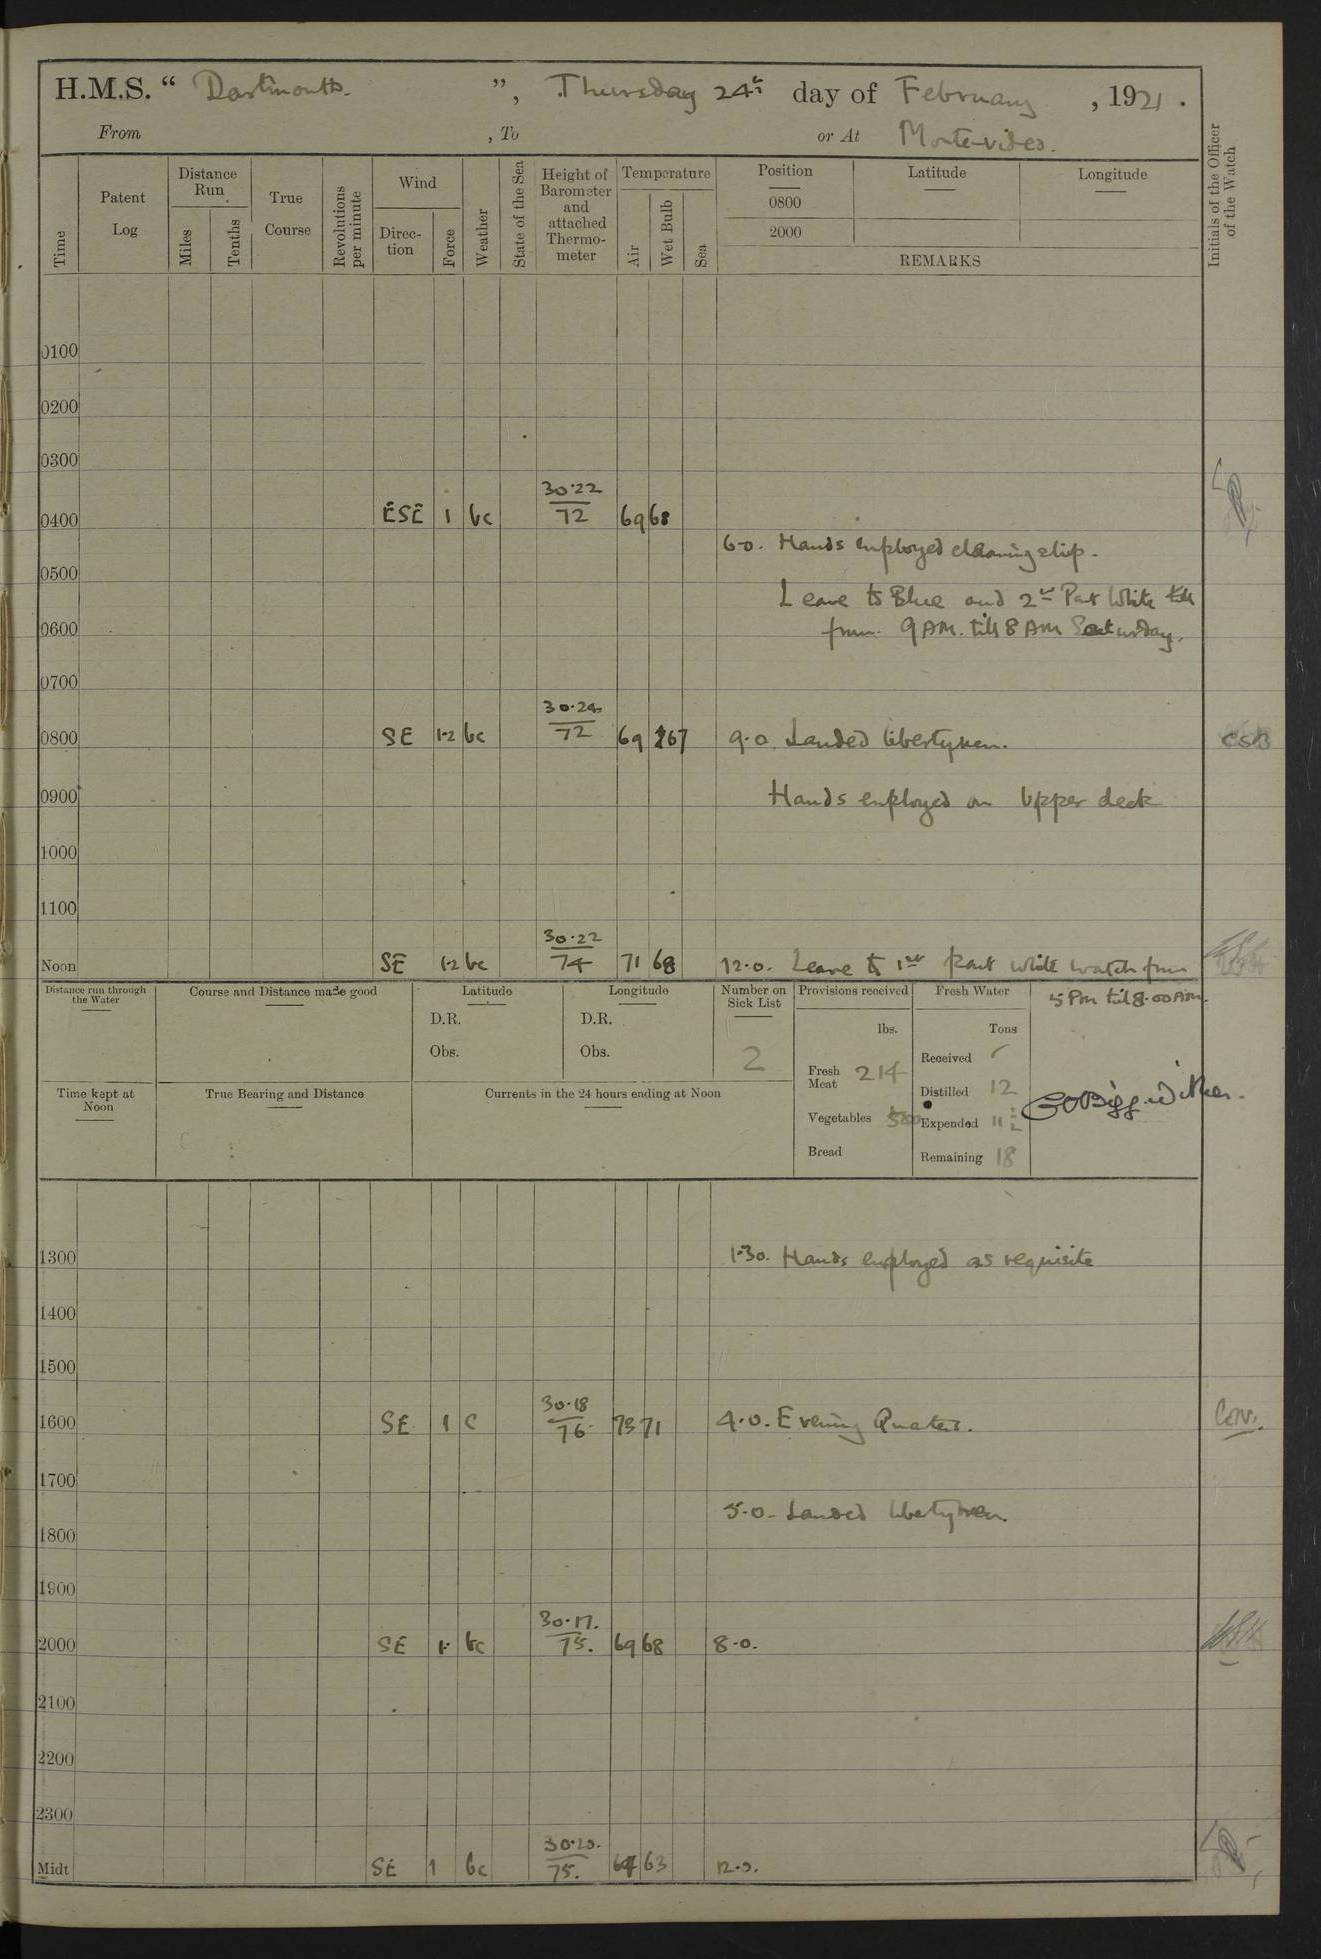 H.M.S. “ Dartmouth. ”, Thursday 24th day of February, 1921.
From , To or At Montevideo.
Time
Patent Log
Distance Run
Miles
Tenths
True Course
Revolutions per minute
Wind
Direction
Force
Weather
State of the Sea
Height of Barometer and attached Thermometer
Temperature
Air
Wet Bulb
Sea
Position
0800
2000
Latitude
Longitude
REMARKS
Initials of the Officer of the Watch
0100
0200
0300
30.22
0400 ESE 1 bc 72 69 68
6-0. Hands employed cleaning ship.
0500
Leave to Blue and 2nd Part White
0600
from 9 AM. till 8 AM Saturday.
0700
0800 SE 1-2 bc 72 69 67 9.0. Landed libertymen. CSB
0900 Hands employed on Upper deck
1000
1100
30.22
Noon SE 1-2 bc 74 71 68 12.0. Leave to 1st part white watch from
5 PM till 8.00 AM.
Distance run through the Water
Course and Distance made good
Latitude
D.R.
Obs.
Longitude
D.R.
Obs.
Number on Sick List
2
Provisions received
lbs.
Fresh Meat 214
Vegetables 500
Bread
Fresh Water
Tons
Received
Distilled 12
Expended 11
Remaining 18
Time kept at Noon
True Bearing and Distance
Currents in the 24 hours ending at Noon
1300 1.30. Hands employed as requisite
1400
1500
30.18
1600 SE 1 c 76 73 71 4.0. Evening Quarters.
1700
5.0. Landed libertymen.
1800
1900
30.17.
2000 SE 1 bc 75. 69 68 8.0.
2100
2200
2300
30.20.
Midt SE 1 bc 75. 64 63 12.0.